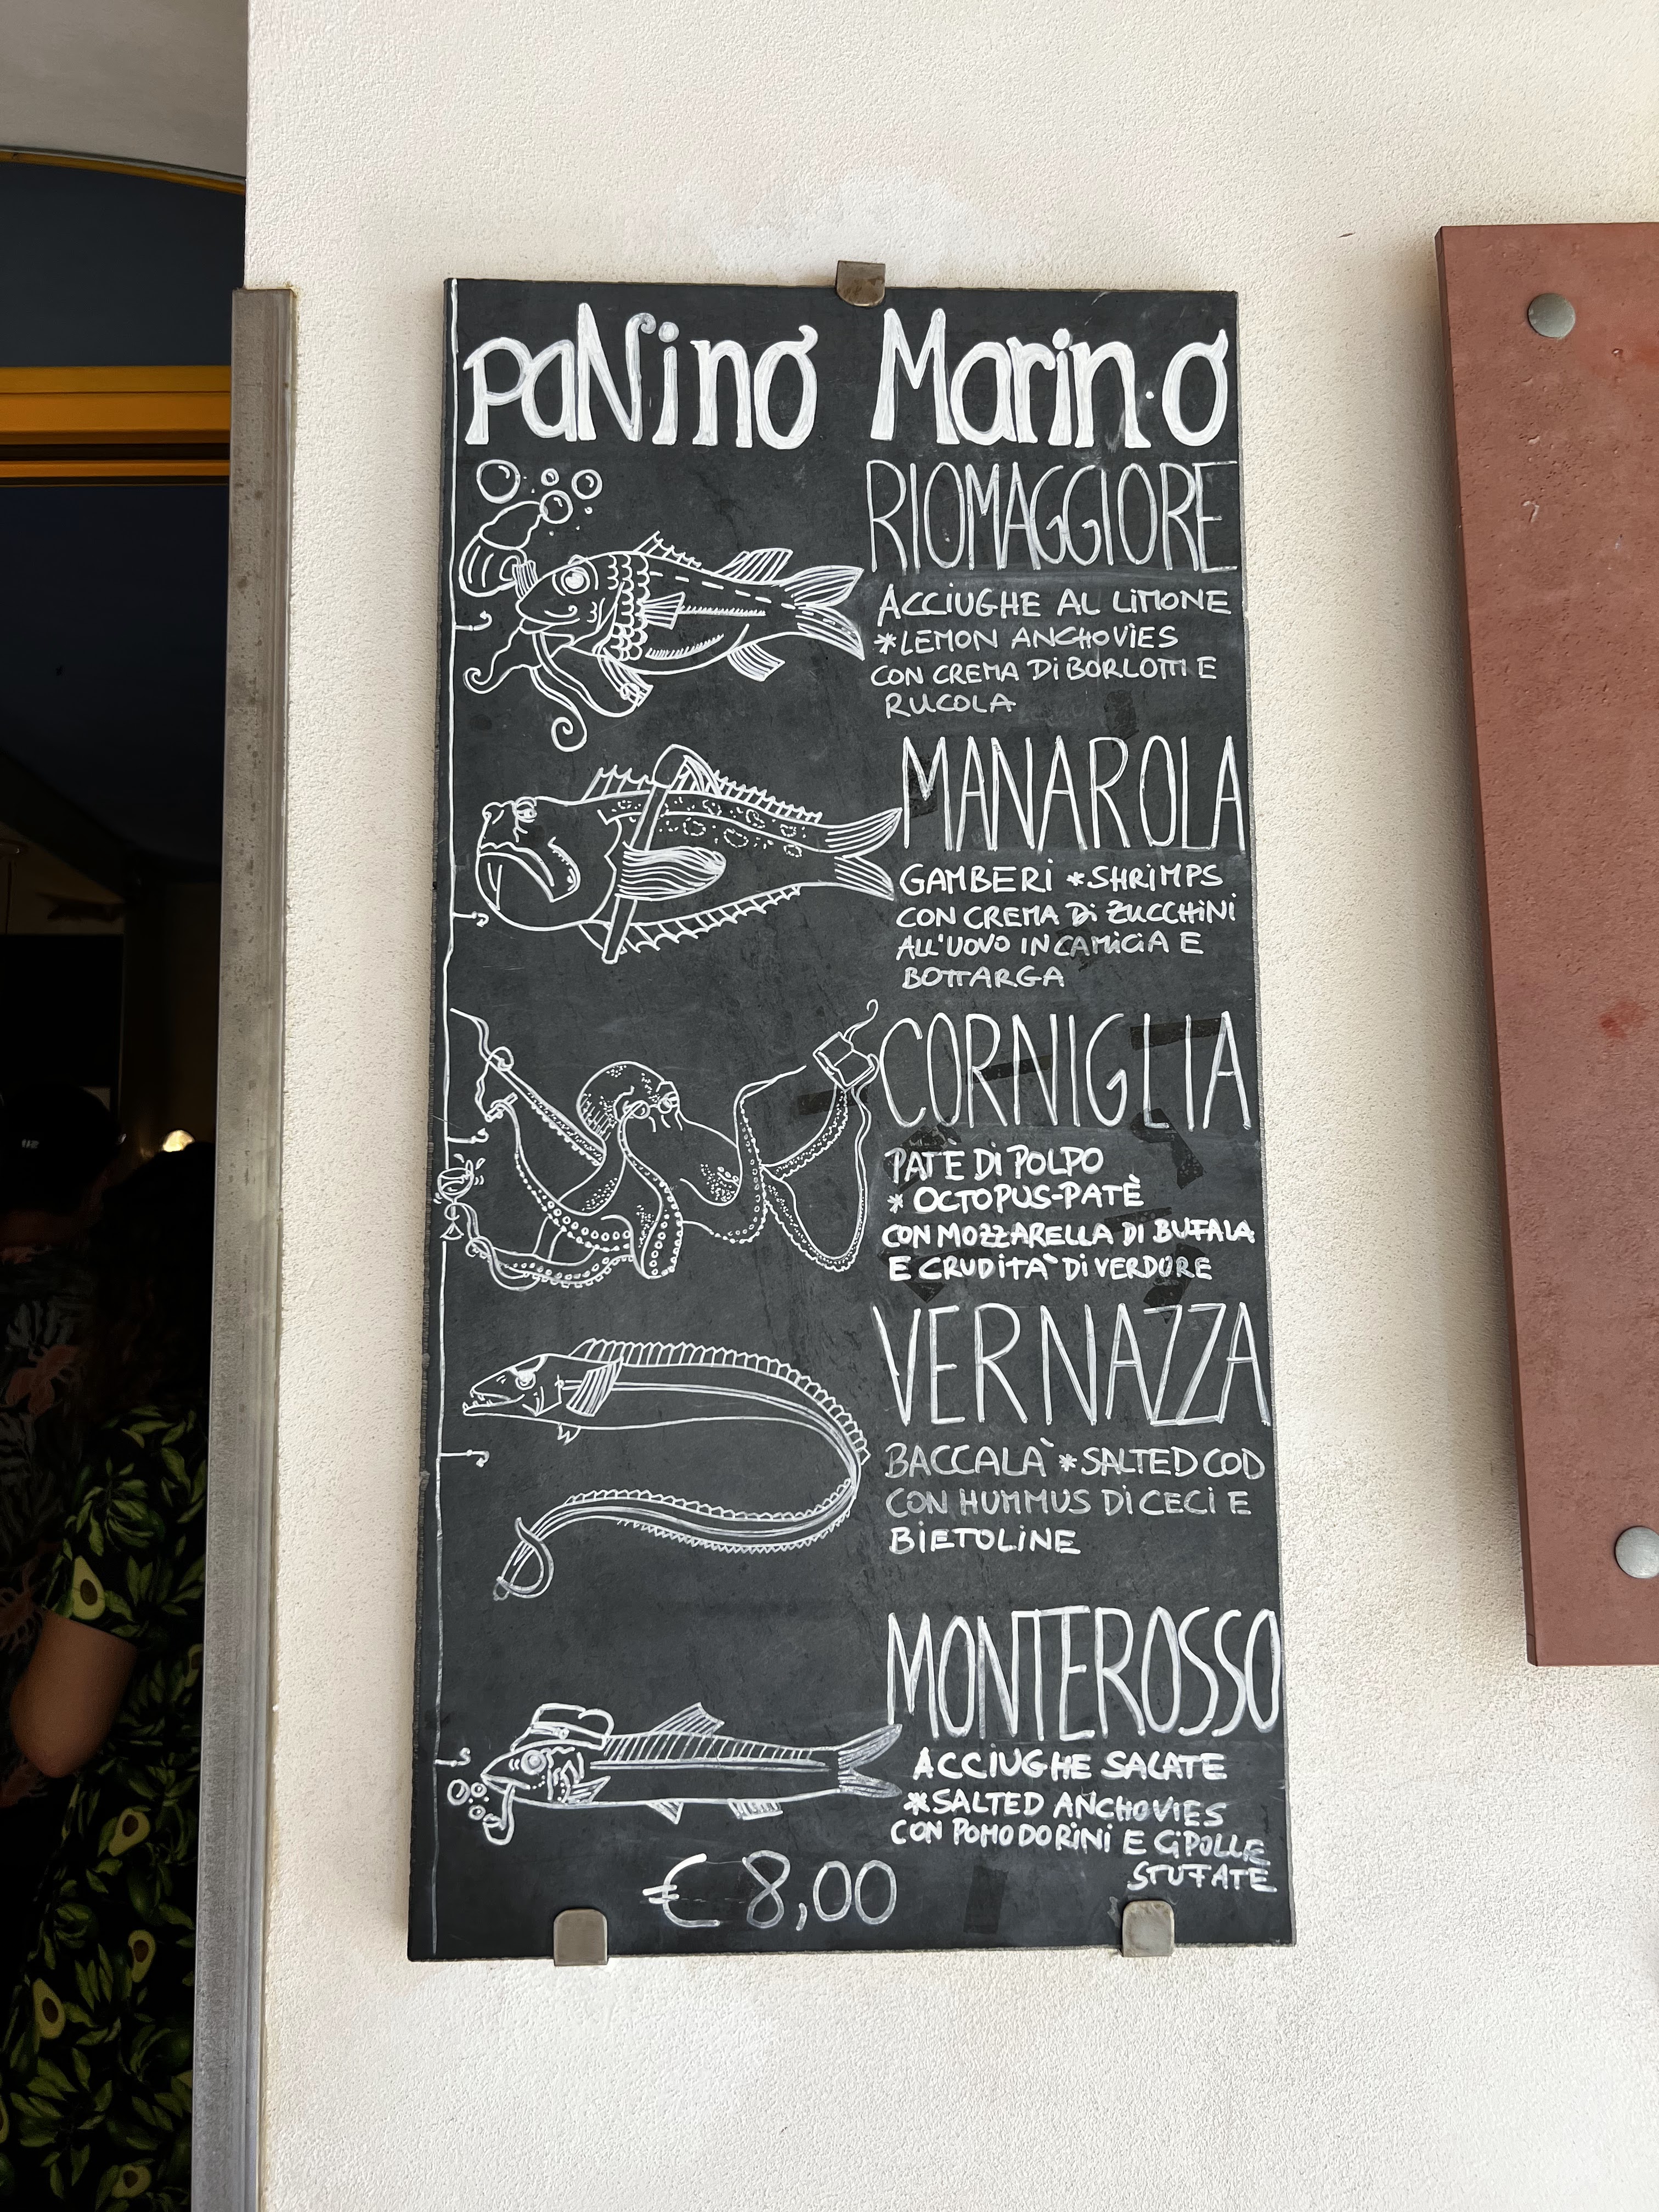 paNino Marino
RIOMAGGIORE
ACCIUGHE AL LIMONE
*LEMON ANCHOVIES
CON CREMA DI BORLOTTI E
RUCOLA
MANAROLA
GAMBERI *SHRIMPS
CON CREMA DI ZUCCHINI
ALL'UOVO IN CAMICIA E
BOTTARGA
CORNIGLIA
PATÈ DI POLPO
* OCTOPUS-PATÈ
CON MOZZARELLA DI BUFALA
E CRUDITÀ DI VERDURE
VERNAZZA
BACCALÀ *SALTED COD
CON HUMMUS DI CECI E
BIETOLINE
MONTEROSSO
ACCIUGHE SALATE
*SALTED ANCHOVIES
CON POMODORINI E CIPOLLE
STUFATE
€ 8,00